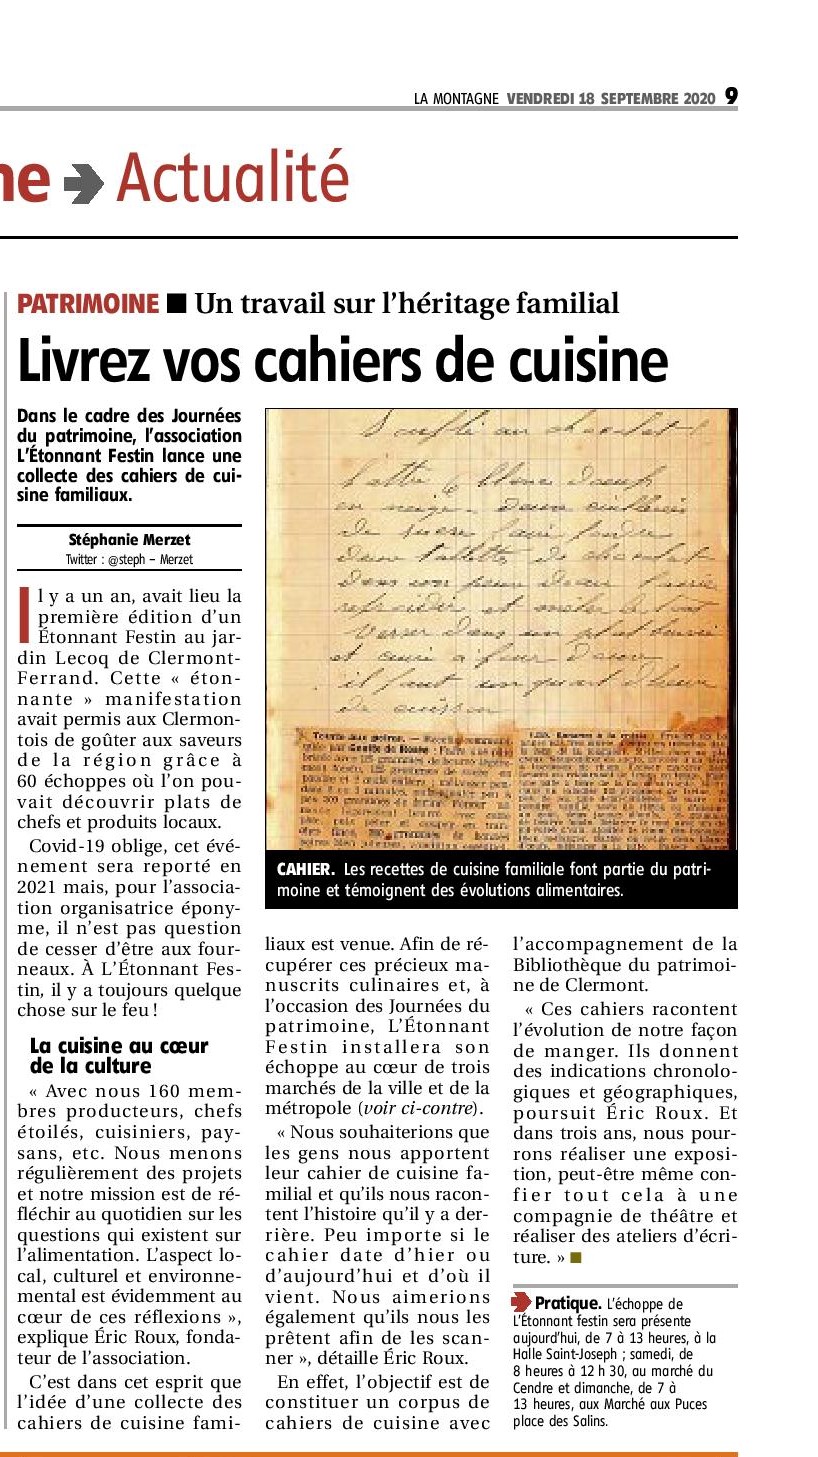 LA MONTAGNE VENDREDI 18 SEPTEMBRE 2020 9
ne Actualité
PATRIMOINE ■ Un travail sur l'héritage familial
Livrez vos cahiers de cuisine
Dans le cadre des Journées
du patrimoine, l'association
L'Étonnant Festin lance une
collecte des cahiers de cui-
sine familiaux.
Stéphanie Merzet
Twitter : @steph – Merzet
Il y a un an, avait lieu la
première édition d'un
Étonnant Festin au jar-
din Lecoq de Clermont-
Ferrand. Cette « éton-
nante » manifestation
avait permis aux Clermon-
tois de goûter aux saveurs
de la région grâce à
60 échoppes où l'on pou-
vait découvrir plats de
chefs et produits locaux.
Covid-19 oblige, cet évé-
nement sera reporté en
2021 mais, pour l'associa-
tion organisatrice épony-
me, il n'est pas question
de cesser d'être aux four-
neaux. À L'Étonnant Fes-
tin, il y a toujours quelque
chose sur le feu !
La cuisine au cœur
de la culture
« Avec nous 160 mem-
bres producteurs, chefs
étoilés, cuisiniers, pay-
sans, etc. Nous menons
régulièrement des projets
et notre mission est de ré-
fléchir au quotidien sur les
questions qui existent sur
l'alimentation. L'aspect lo-
cal, culturel et environne-
mental est évidemment au
cœur de ces réflexions »,
explique Éric Roux, fonda-
teur de l'association.
C'est dans cet esprit que
l'idée d'une collecte des
cahiers de cuisine fami-
Soufflé au chocolat
Battre 6 blancs d'œufs
en neige. Deux
de sucre faire fondre
deux tablettes de chocolat
dans un peu d'eau laisser
refroidir et mêler le tout
verser dans un plat
et cuire à four doux
il faut un quart d'heure
de cuisson
Tourte aux poires.
CAHIER. Les recettes de cuisine familiale font partie du patri-
moine et témoignent des évolutions alimentaires.
liaux est venue. Afin de ré-
cupérer ces précieux ma-
nuscrits culinaires et, à
l'occasion des Journées du
patrimoine, L'Étonnant
Festin installera son
échoppe au cœur de trois
marchés de la ville et de la
métropole (voir ci-contre).
« Nous souhaiterions que
les gens nous apportent
leur cahier de cuisine fa-
milial et qu'ils nous racon-
tent l'histoire qu'il y a der-
rière. Peu importe si le
cahier date d'hier ou
d'aujourd'hui et d'où il
vient. Nous aimerions
également qu'ils nous les
prêtent afin de les scan-
ner », détaille Éric Roux.
En effet, l'objectif est de
constituer un corpus de
cahiers de cuisine avec
l'accompagnement de la
Bibliothèque du patrimoi-
ne de Clermont.
« Ces cahiers racontent
l'évolution de notre façon
de manger. Ils donnent
des indications chronolo-
giques et géographiques,
poursuit Éric Roux. Et
dans trois ans, nous pour-
rons réaliser une exposi-
tion, peut-être même con-
fier tout cela à une
compagnie de théâtre et
réaliser des ateliers d'écri-
ture. » ■
Pratique. L'échoppe de
L'Étonnant festin sera présente
aujourd'hui, de 7 à 13 heures, à la
Halle Saint-Joseph ; samedi, de
8 heures à 12 h 30, au marché du
Cendre et dimanche, de 7 à
13 heures, aux Marché aux Puces
place des Salins.